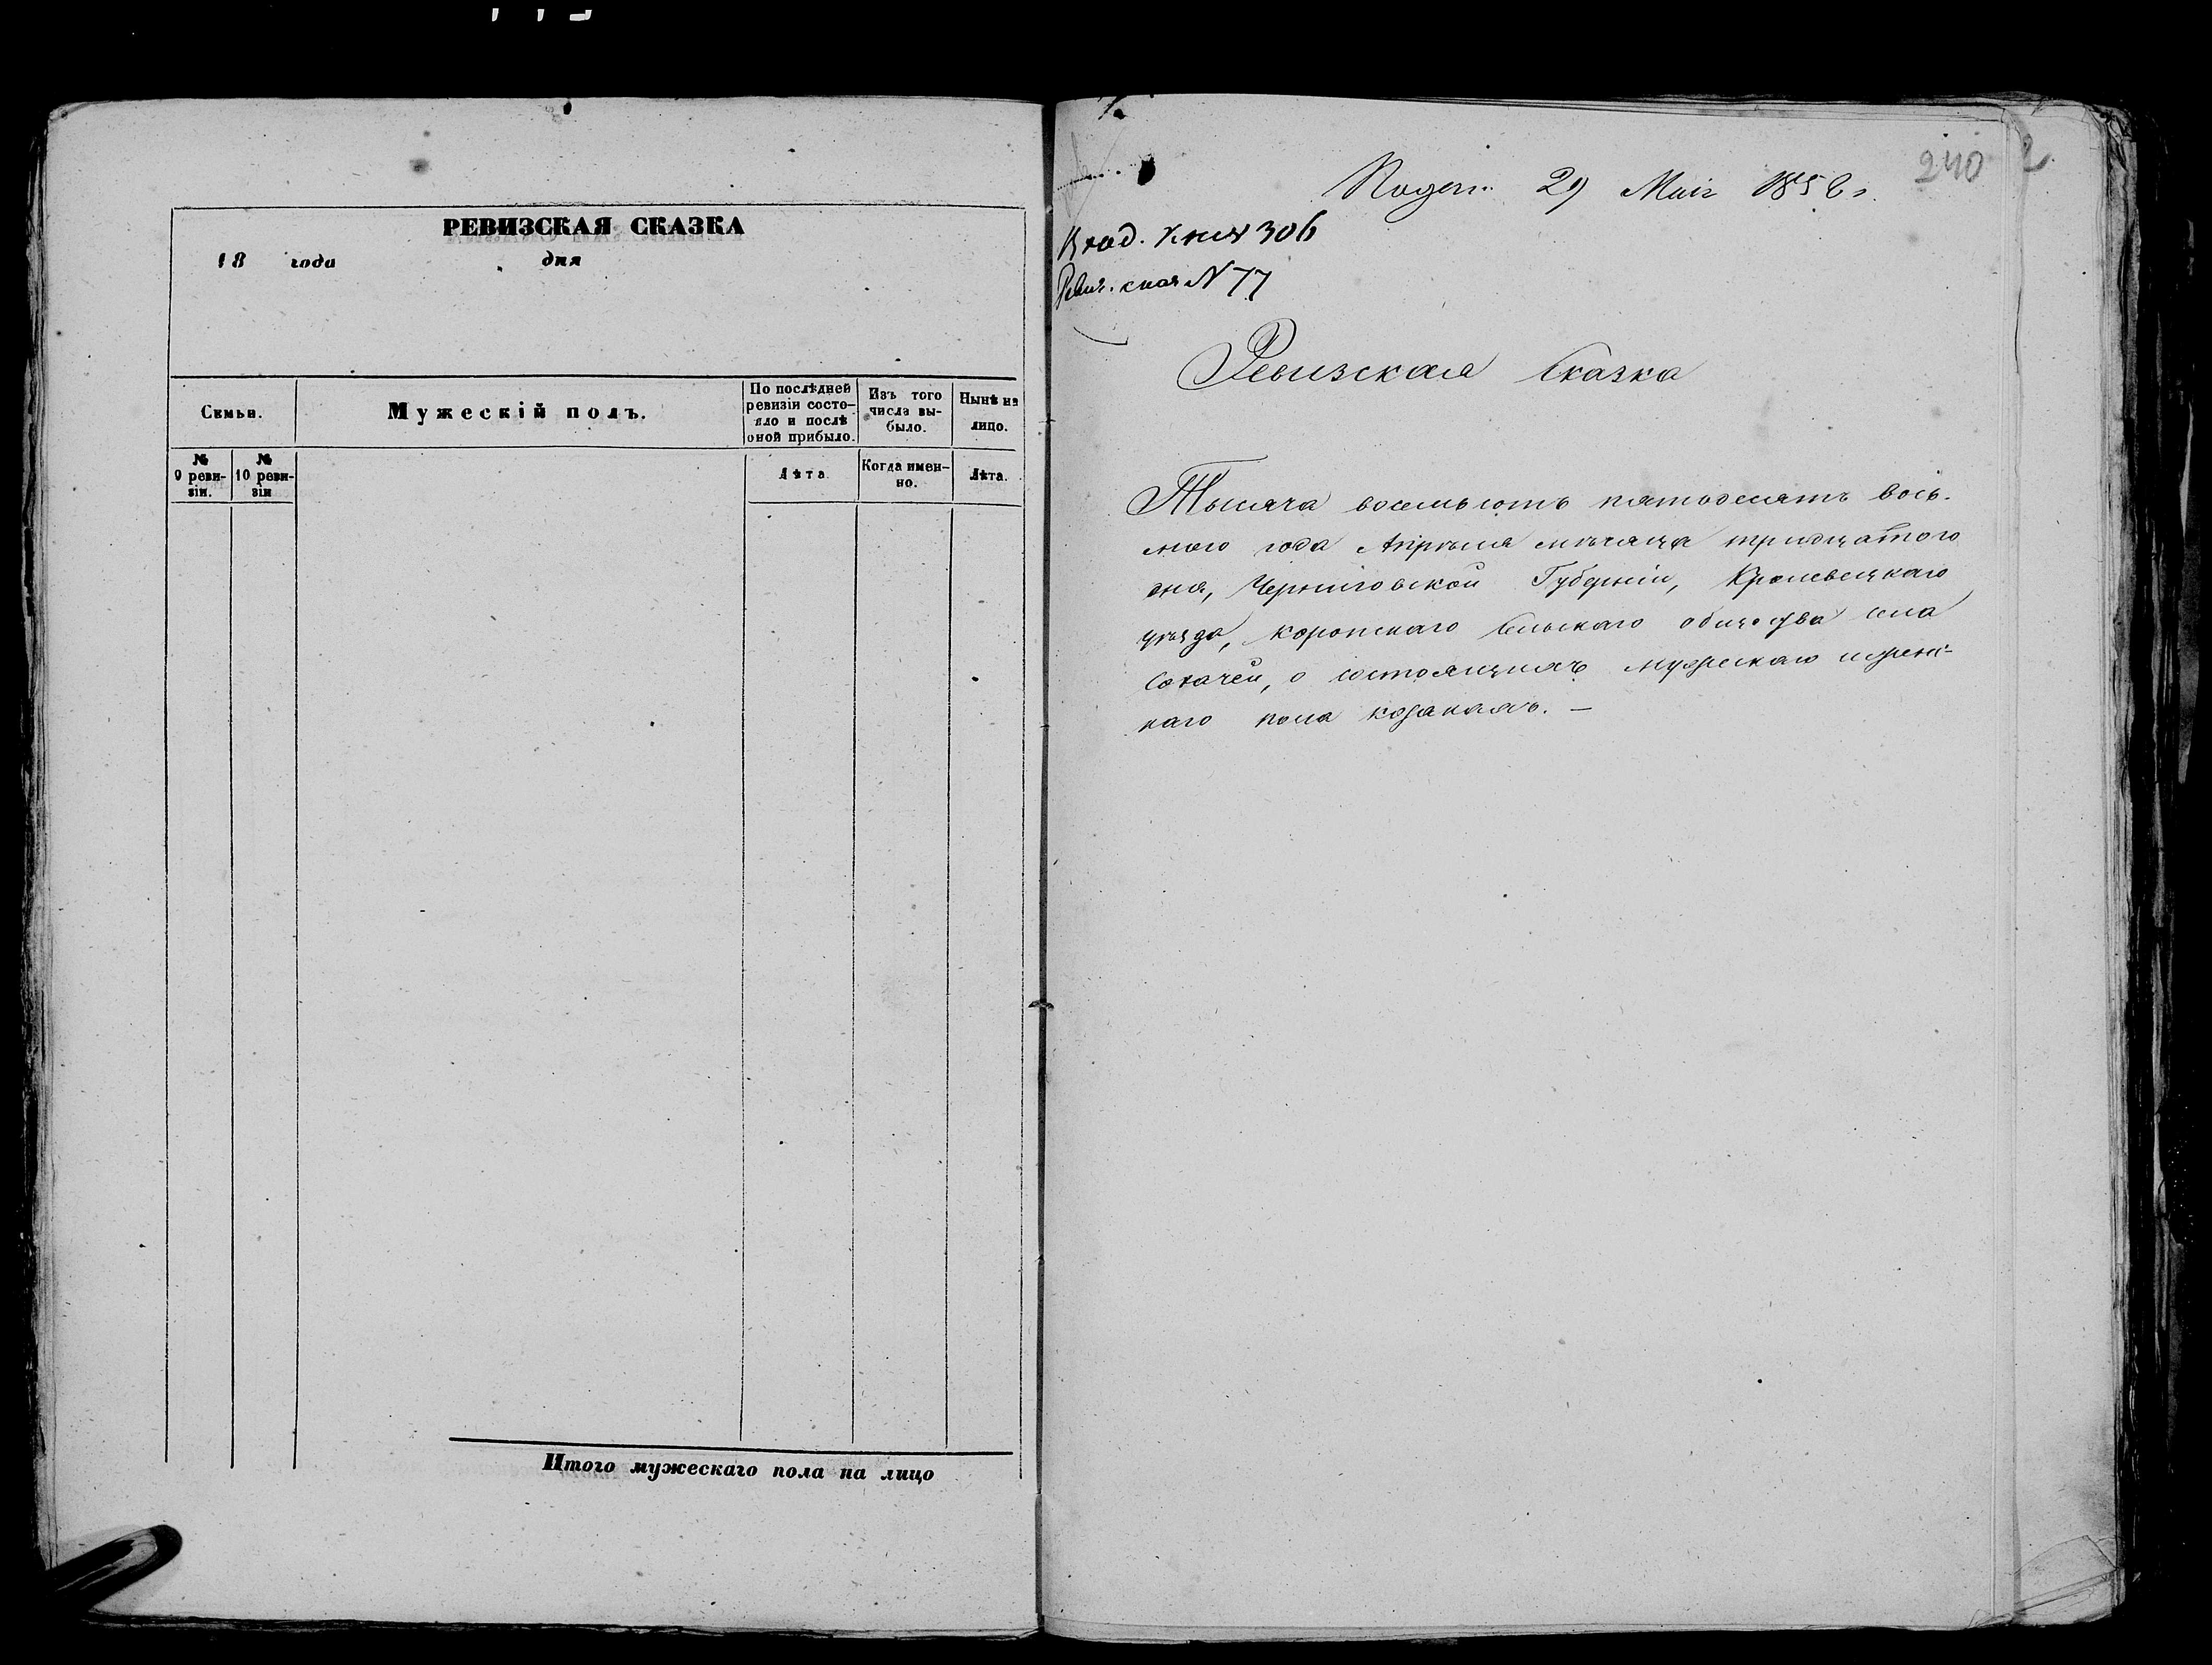 РЕВИЗСКАЯ СКАЗКА
18 года дня
Семьи.
Мужескій полъ.
По послѣдней
ревизіи состо-
яло и послѣ
оной прибыло.
Изъ того
числа вы-
было.
Нынѣ на
лицо.
№
9 реви-
зіи.
№
10 реви-
зіи
Лѣта.
Когда имен-
но.
Лѣта.
Итого мужескаго пола на лицо
240
29 Маія 1858 г.
Вход. книг 306
Ревиз. сказ № 77
Ревизская Сказка
Тысяча восемьсотъ пятьдесятъ вось-
мого года Апрѣля мѣсяца тридцатого
дня, Черниговской Губерніи, Кролевецкаго
уѣзда, коропскаго Сельскаго общества села
Собичей, о состоящихъ мужескаго и женс-
каго пола козакахъ. —